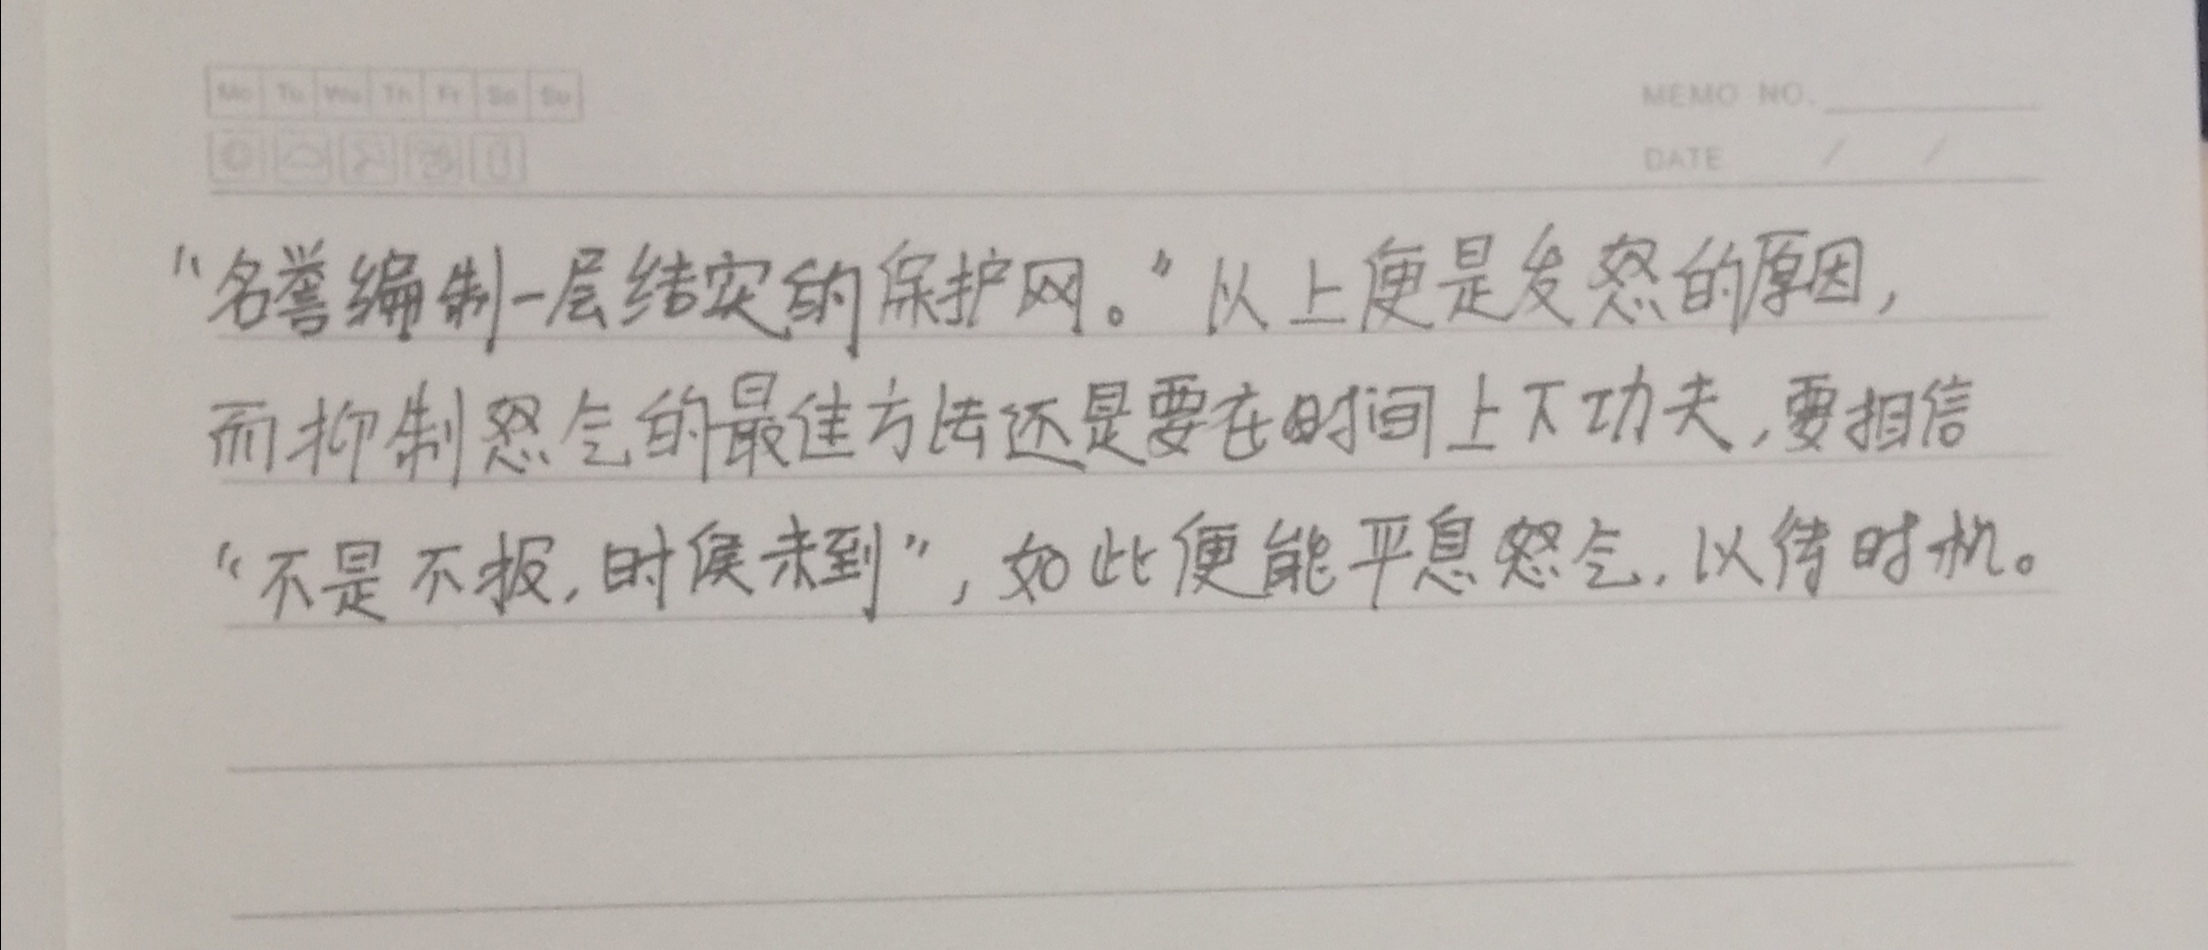 Mo Tu We Th Fr Sa Su
MEMO NO.
DATE / /
“名誉编制一层结实的保护网。”以上便是发怒的原因,
而抑制怒气的最佳方法还是要在时间上下功夫,要相信
“不是不报,时候未到”,如此便能平息怒气,以待时机。